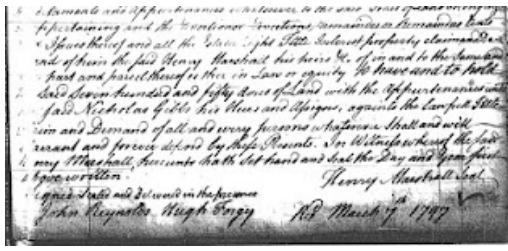 ditaments and Appurtenances whatsoever to the said Tract of Land belonging
appertaining and the Reversion Reversions, remainder or remainders Rents
& Issues thereof and all the Estate Right Title Interest property claim and
and of him the said Henry Marshall his heirs &c. of in and to the Same and
part and parcel thereof either in Law or equity To have and to hold
Said Seven hundred and fifty acres of Land with the Appurtenances unto
Said Nicholas Gibbs his Heirs and Assigns, against the lawful Title
aim and Demand of all and every persons whatsoever Shall and will
arrant and forever defend by these Presents. In Witness whereof the said
enry Marshall, hereunto hath Set hand and Seal the Day and Year first
above written. Henry Marshall Seal
igned Sealed and Delivered in the presence
John Reynolds, Hugh Forgy Rd. March 7th 1797